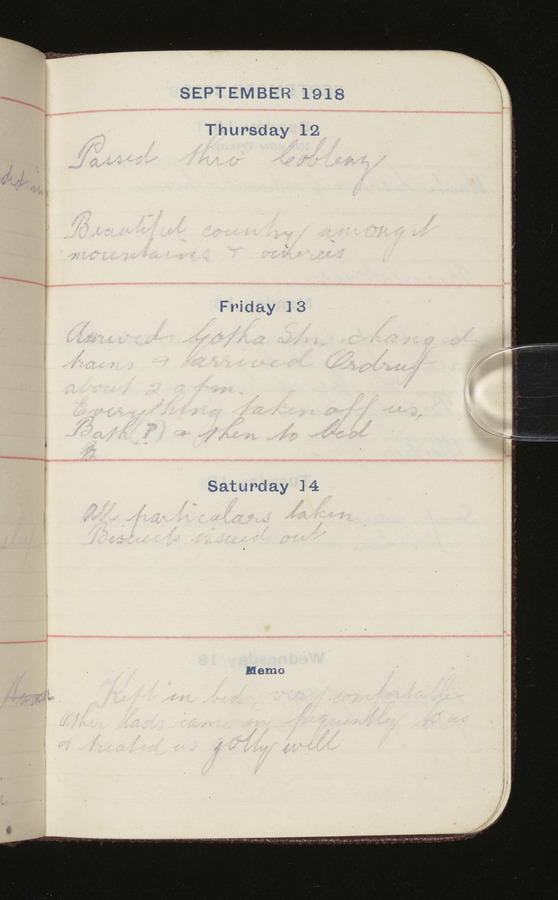 SEPTEMBER 1918
Thursday 12
Passed thro' Coblenz
Beautiful country amongst
mountains & vineries
Friday 13
Arrived Gotha Stn, changed
trains & arrived Ordruf
about 2 a pm.
Everything taken off us,
Bath (?) & then to bed
B
Saturday 14
All particulars taken
Biscuits issued out
Memo
Kept in bed, very comfortable
Other lads came in frequently to us
& treated us jolly well